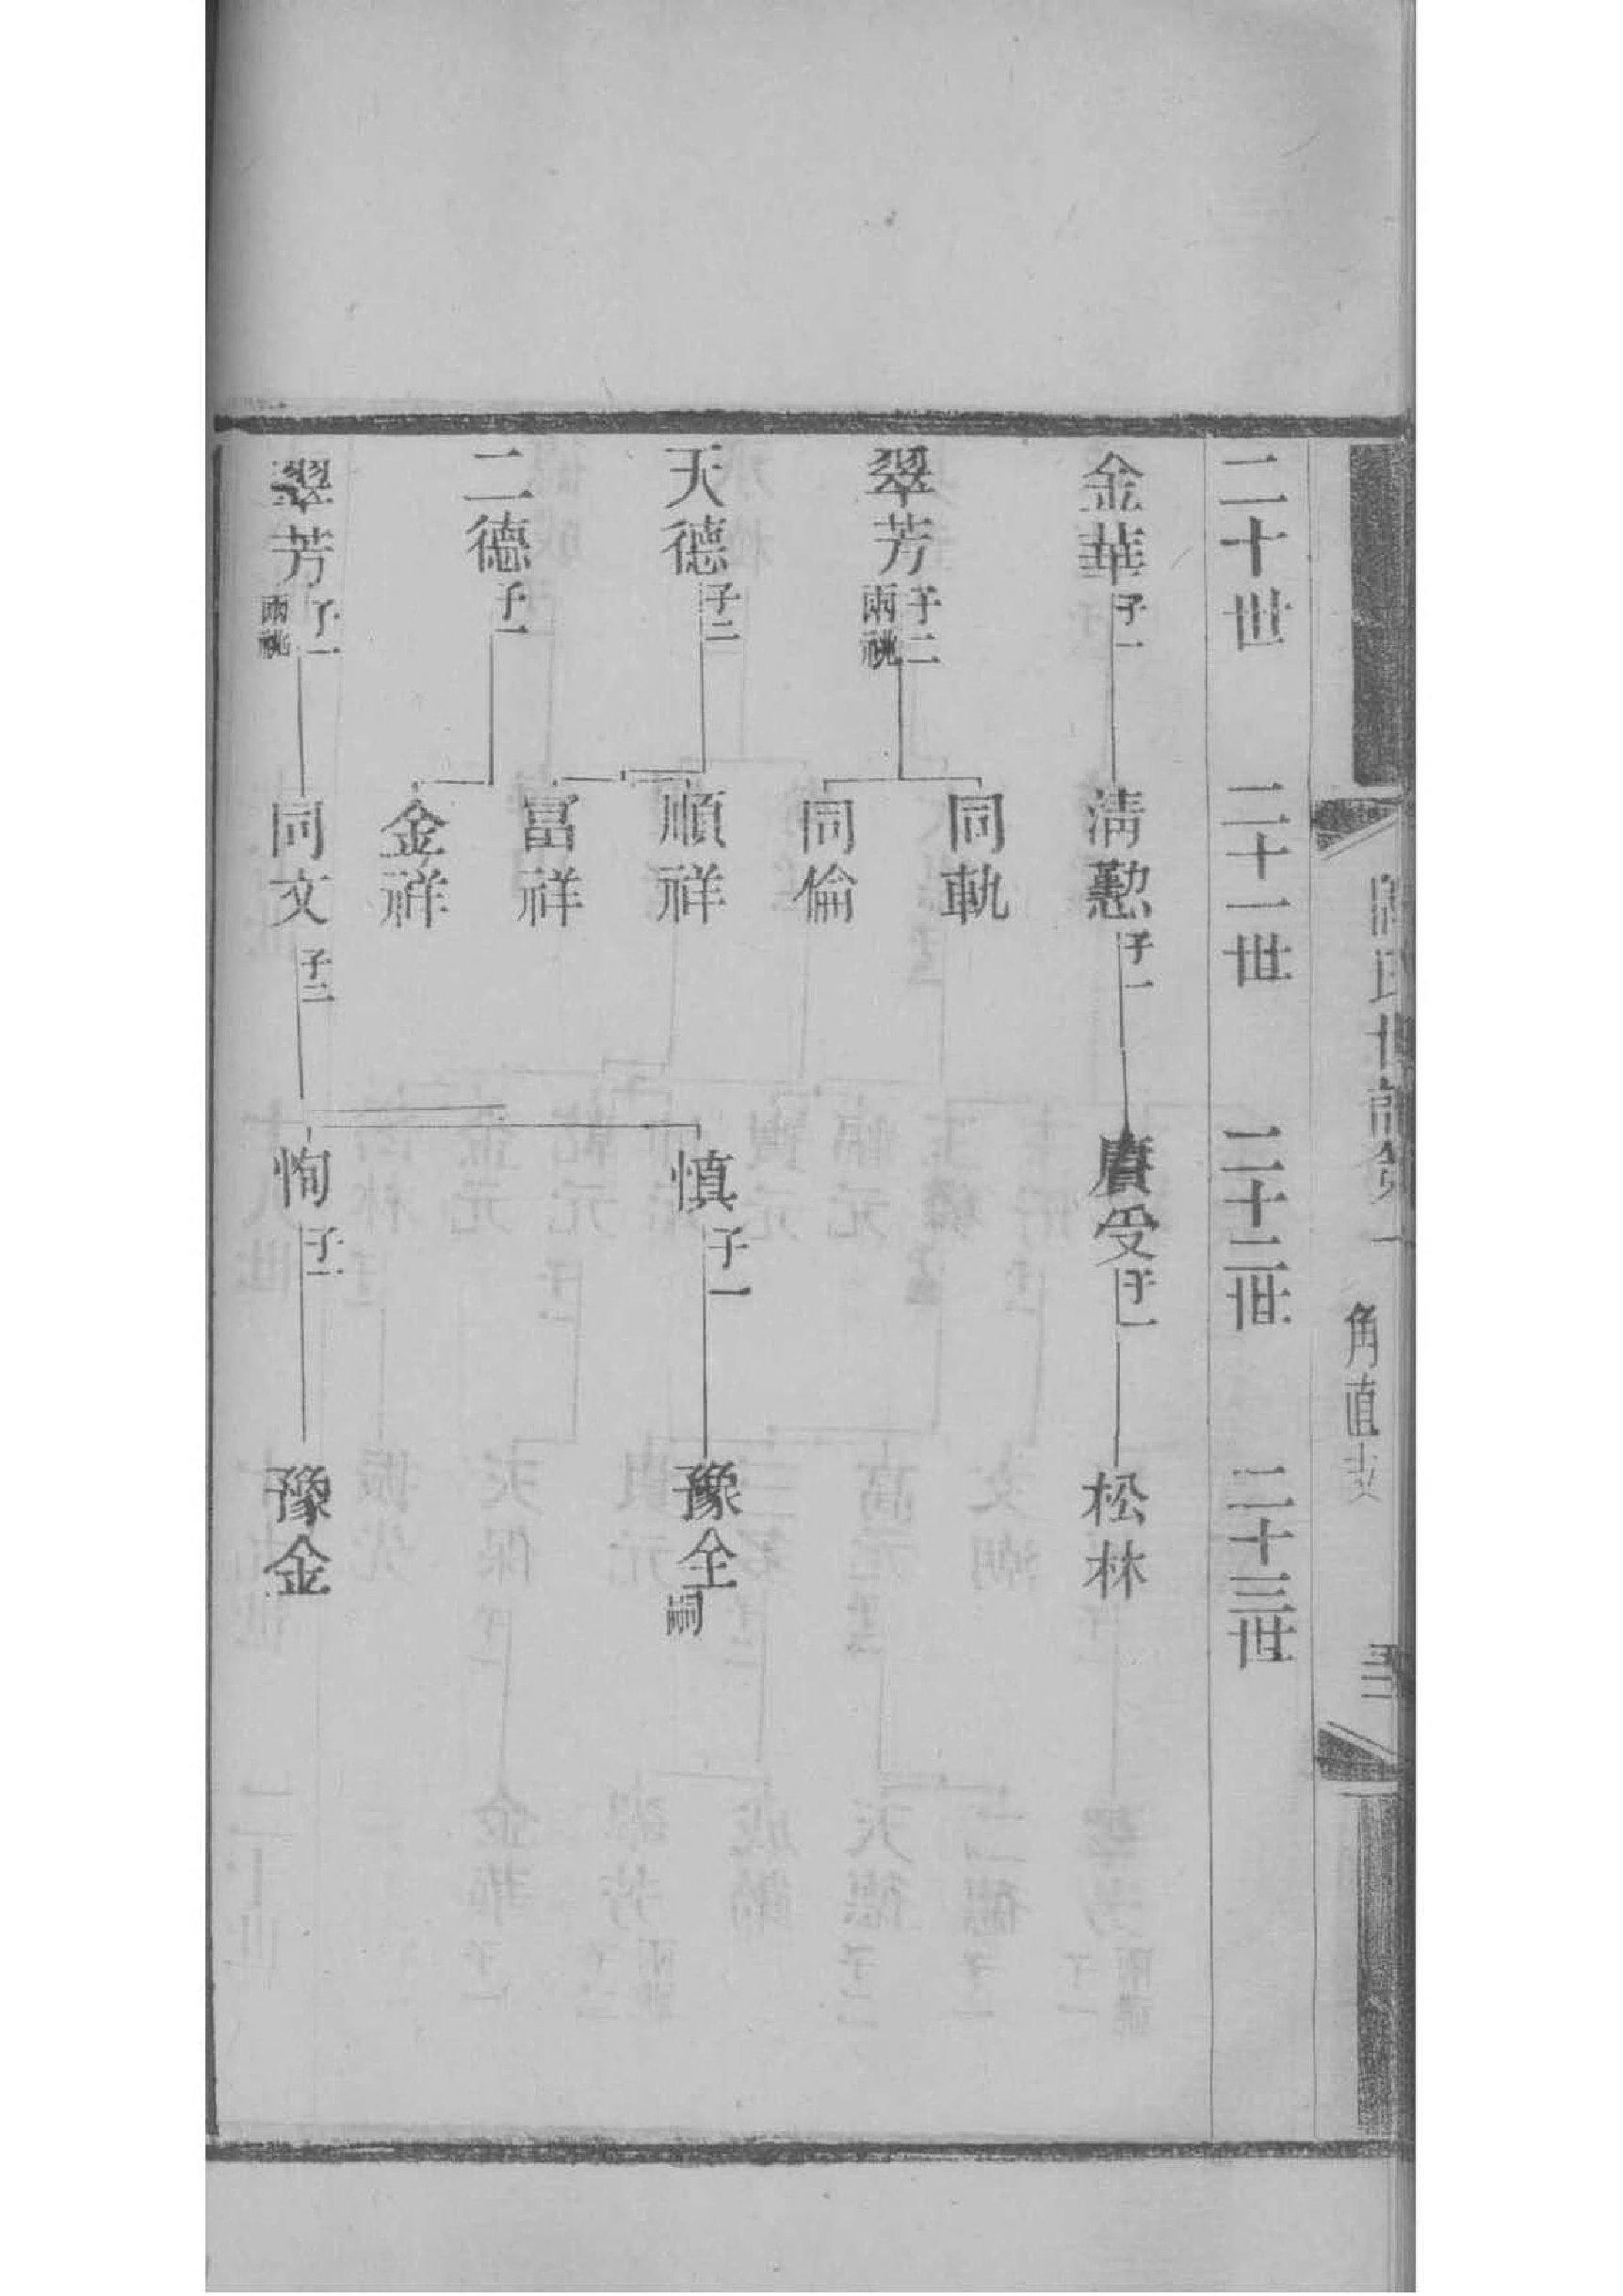 二十世
二十一世
二十二世
二十三世
金華 子一
清懃 子一
賡受 子一
松林
翠芳 子二 兩祧
同軌
同倫
天德 子二
順祥
富祥
二德 子一
金祥
翠芳 子一 兩祧
同文 子二
慎 子一
豫全 嗣
恂 子一
豫金
氏世譜 一
角直支